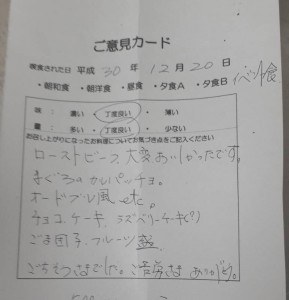 ご意見カード
喫食された日 平成 30年 12月 20日
・朝和食 ・朝洋食 ・昼食 ・夕食A ・夕食B イベント食
味： 濃い ・ 丁度良い ・ 薄い
量： 多い ・ 丁度良い ・ 少ない
お召し上がりになったお料理についてお気づき点をご記入ください
ローストビーフ大変おいしかったです。
まぐろのカルパッチョ。
オードブル風 etc.
チョコケーキ、ラズベリーケーキ(?)
ごま団子、フルーツ盛
ごちそうさまでした。ご苦労さま ありがとう。